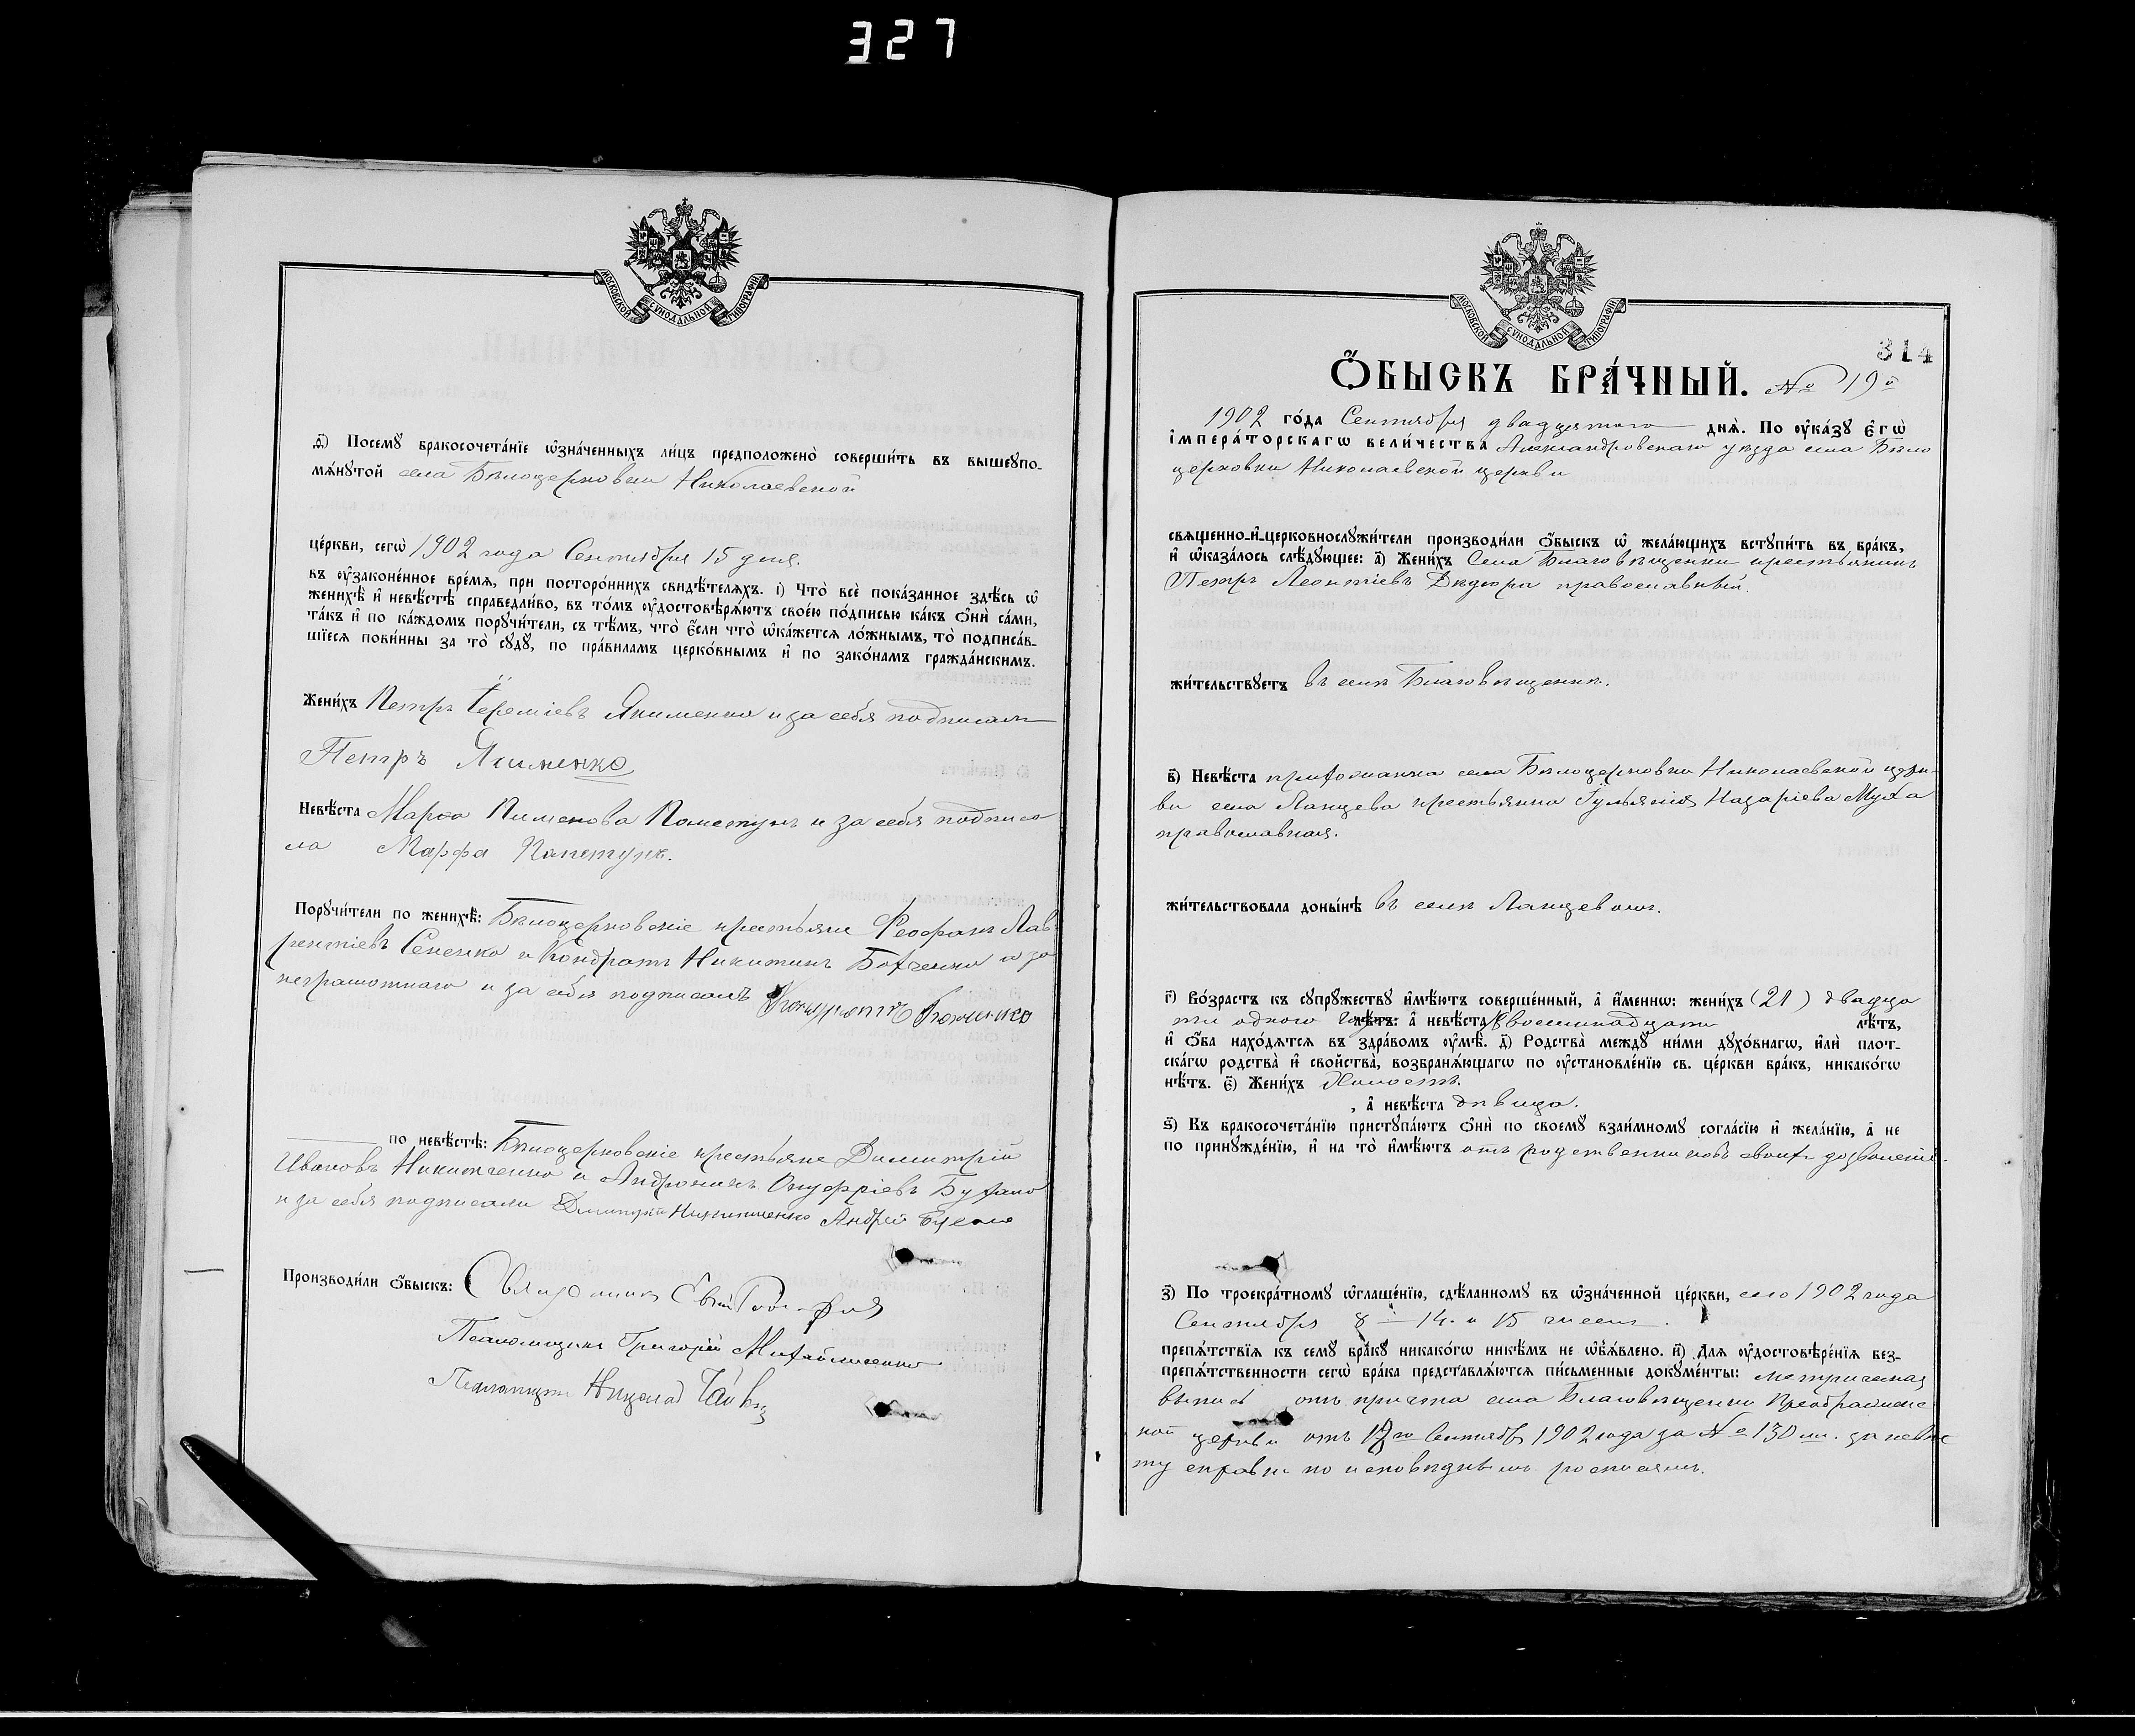 327
МОСКОВСКОЙ СУНОДАЛЬНОЙ ТИПОГРАФІИ
ѳ҃) Посемꙋ̀ бракосочета́нїе ѡ҆зна́ченныхъ ли́цъ предположено̀ соверши́ть въ вышеꙋпо-
мѧ́нꙋтой села Бѣлоцерковки Николаевской
це́ркви, сегѡ̀ 1902 года Сентября 15 дня.
въ ᲂу҆законе́нное вре́мѧ, при посторо́ннихъ свидѣ́телѧхъ. і҃) Что̀ всѐ пока́занное здѣ́сь ѡ҆
женихѣ̀ и҆ невѣ́стѣ справедли́во, въ то́мъ ᲂу҆достовѣрѧ́ютъ свое́ю по́дписью ка́къ ѻ҆нѝ са́ми,
та́къ и҆ по ка́ждомъ порꙋчи́тели, съ тѣ́мъ, что̀ є҆́сли что̀ ѡ҆ка́жетсѧ ло́жнымъ, то̀ подписа́в-
шїесѧ пови́нны за то̀ сꙋдꙋ̀, по пра́виламъ церко́внымъ и҆ по зако́намъ гражда́нскимъ.
Жени́хъ Петръ Іереміевъ Якименко и за себя подписалъ
Петръ Якименко
Невѣ́ста Марѳа Пименова Пометунъ и за себя подписа
ла Марфа
Порꙋчи́тели по женихѣ̀: Бѣлоцерковскіе крестьяне Феофанъ Лав-
рентіевъ Сененко и Кондратъ Никитинъ и за
неграмотнаго и за себя подписалъ
по невѣ́стѣ: Бѣлоцерковскіе крестьяне Димитрій
Ивановъ Никитченко и Онуфріевъ
и за себя подписали Димитрій Никитченко Андрей
Производи́ли ѻ҆́быскъ: Священникъ
Псаломщикъ Григорій Михайличенко
Псаломщикъ Николай
МОСКОВСКОЙ СУНОДАЛЬНОЙ ТИПОГРАФІИ
314
Ѻ҆́быскъ бра́чный. № 19й
1902 го́да Сентября двадцятого днѧ̀. По ᲂу҆ка́зꙋ є҆гѡ̀
і҆мпера́торскагѡ вели́чества Александровскаго уѣзда села Бѣло
церковки Николаевской церкви
свѧще́нно-и҆-церковнослꙋжи́тели производи́ли ѻ҆́быскъ ѡ҆ жела́ющихъ встꙋпи́ть въ бра́къ,
и҆ ѡ҆каза́лось слѣ́дꙋющее: а҃) Жени́хъ Села Благовѣщенки крестьянинъ
Петръ Леонтіевъ православный.
жи́тельствꙋетъ въ селѣ Благовѣщенкѣ.
в҃) Невѣ́ста прихожанка села Бѣлоцерковки Николаевской церк-
ви села Ланцева крестьянка Гульянія Назаріева Муха
православная.
жи́тельствовала доны́нѣ въ селѣ Ланцевомъ.
г҃) Во́зрастъ къ сꙋпрꙋ́жествꙋ и҆мѣ́ютъ соверше́нный, а҆ и҆́меннѡ: жени́хъ (21) двадца
ти одного лѣ́тъ: а҆ невѣ́ста восемнадцати лѣ́тъ,
и҆ ѻ҆́ба нахо́дѧтсѧ въ здра́вомъ ᲂу҆мѣ̀. д҃) Родства̀ междꙋ̀ ни́ми дꙋхо́внагѡ, и҆лѝ плот-
ска́гѡ родства̀ и҆ сво́йства̀, возбранѧ́ющагѡ по ᲂу҆становле́нїю св. це́ркви бра́къ, никако́гѡ
нѣ́тъ. є҃) Жени́хъ Холостъ.
, а҆ невѣ́ста дѣвица.
ѕ҃) Къ бракосочета́нїю пристꙋпа́ютъ ѻ҆нѝ по своемꙋ̀ взаи́мномꙋ согла́сїю и҆ жела́нїю, а҆ не
по принꙋжде́нїю, и҆ на то̀ и҆мѣ́ютъ отъ родственниковъ своихъ дозволеніе.
з҃) По троекра́тномꙋ ѡ҆глаше́нїю, сдѣ́ланномꙋ въ ѡ҆зна́ченной це́ркви, сего 1902 года
Сентября 8 – 14. и 15 чиселъ.
препѧ́тствїѧ къ семꙋ̀ бра́кꙋ никако́гѡ никѣ́мъ не ѡ҆б̾ѧ́влено. и҃) Длѧ ᲂу҆достовѣре́нїѧ без-
препѧ́тственности сегѡ̀ бра́ка представлѧ́ютсѧ пи́сьменные докꙋме́нты: метрическая
выпись отъ причта села Благовѣщенки Преображенс
кой церкви отъ Сентября 1902 года за № 130 мъ. за невѣс
ту справки по исповѣднымъ росписямъ.